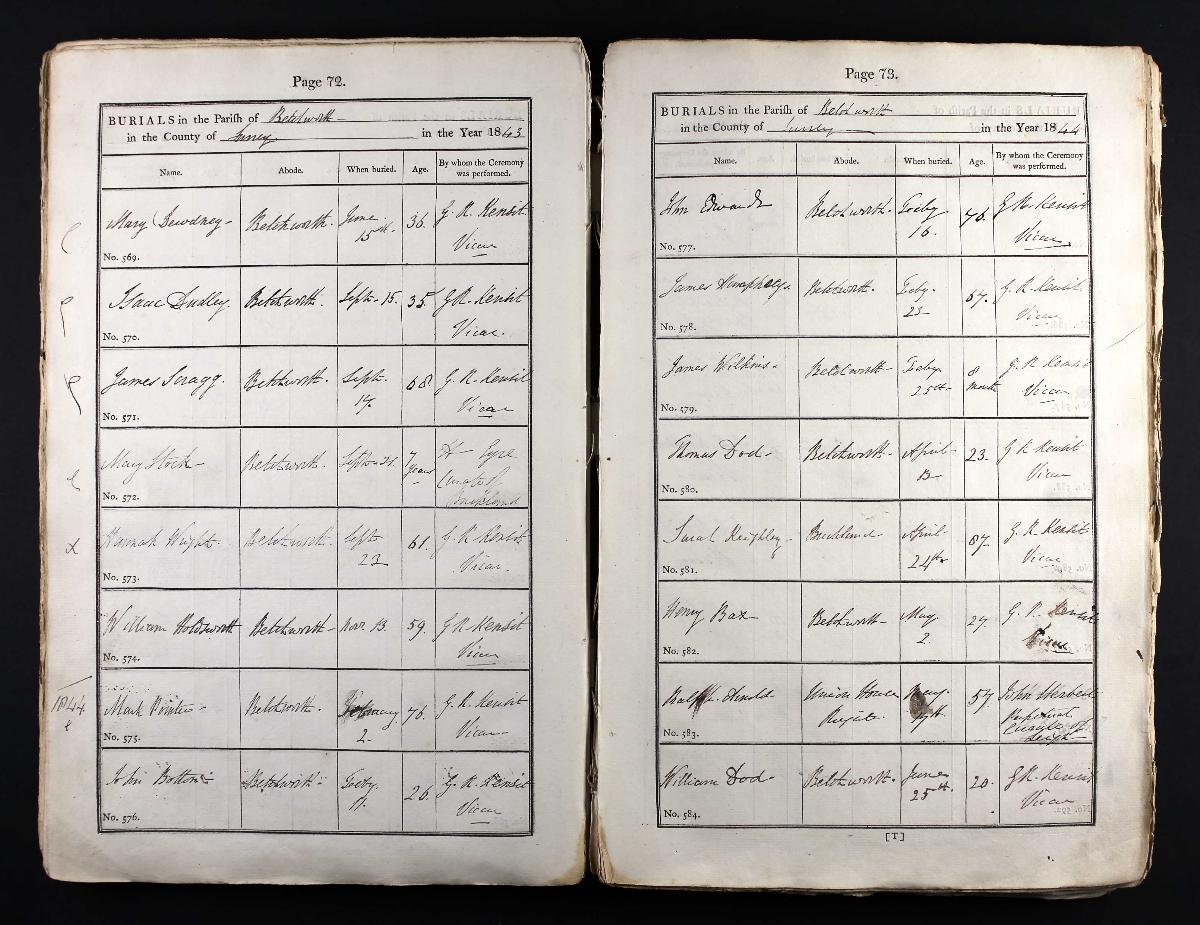 Page 72.
BURIALS in the Parish of Betchworth
in the County of Surrey in the Year 1843
Name. Abode. When buried. Age. By whom the Ceremony was performed.
Mary Dewdney Betchworth. June 15th. 36. G. R. Kensit
Vicar
No. 569.
Isaac Dudley. Betchworth. Septr. 15. 35 G R. Kensit
Vicar.
No. 570.
James Scragg. Betchworth. Septr. 17. 68. G. R. Kensit
Vicar
No. 571.
Mary Stock Betchworth. Septr. 21. 7 Years H Eyre
Curate of
Buckland
No. 572.
Hannah Wright. Betchworth. Septr 23 61. G. R Kensit
Vicar.
No. 573.
William Holdsworth Betchworth Novr. 13. 59. G R Kensit
Vicar
No. 574.
1844
Mark Betchworth. February 2. 76. G. R. Kensit
Vicar
No. 575.
John Betchworth Feby. 26. G. R. Kensit
Vicar
No. 576.
Page 73.
BURIALS in the Parish of Betchworth
in the County of Surrey in the Year 1844
Name. Abode. When buried. Age. By whom the Ceremony was performed.
John Edwards Betchworth. Feby 16. 76. G R. Kensit
Vicar
No. 577.
James Humphreys Betchworth. Feby. 67. G. R. Kensit
Vicar
No. 578.
James Wilkins. Betchworth Feby. 25th 8 month G. R. Kensit
Vicar
No. 579.
Thomas Dod Betchworth. April 13 23. G R Kensit
Vicar
No. 580.
Sarah Keighley Buckland April 24th 87. G. R. Kensit
Vicar
No. 581.
Henry Bax Betchworth May 2. 27. G. R. Kensit
Vicar
No. 582.
Union House
Reigate May 57. John Herbert
Perpetual
Curate of
Leigh
No. 583.
William Dod Betchworth. June 25th. 20. G R. Kensit
Vicar
No. 584.
[T]